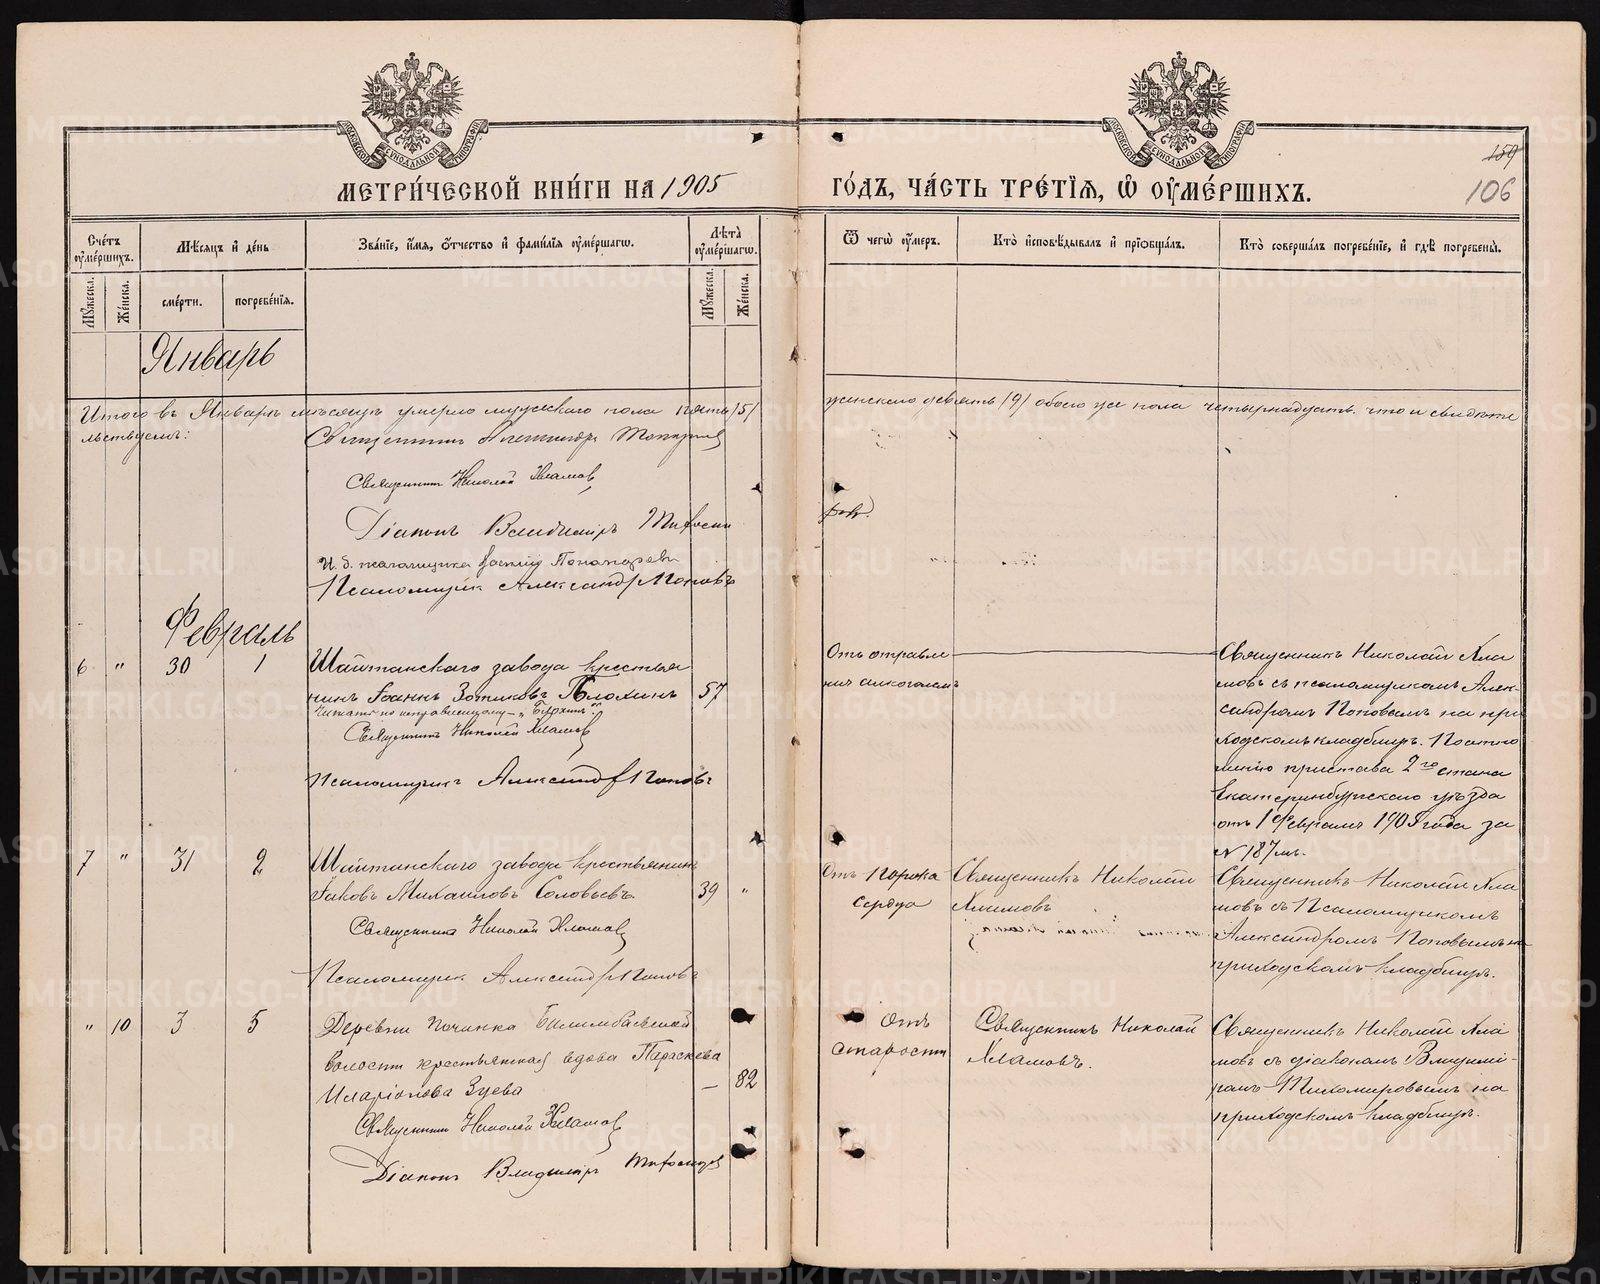 МЕТРИ́ЧЕСКОЙ КНИ́ГИ НА 1905
ГО́ДЪ, ЧА́СТЬ ТРЕ́ТІЯ, Ѿ ОУ҆МЕ́РШИХЪ.
159
106
Сче́тъ оу҆ме́ршихъ.
Мѣ́сяцъ и҆ де́нь
Зва́ніе, и҆́мя, ѻ҆́тчество и҆ фами́лія оу҆ме́ршагѡ.
Лѣ́та оу҆ме́ршагѡ.
Ѿ чегѡ̀ оу҆́меръ.
Кто̀ и҆сповѣ́дывалъ и҆ прїѡбща́лъ.
Кто̀ соверша́лъ погребе́ніе, и҆ гдѣ̀ погребены̀.
Мꙋ́жеска.
Же́нска.
сме́рти.
погребе́нія.
Мꙋ́жеска.
Же́нска.
Январь
Итого въ Январѣ мѣсяцѣ умерло мужескаго пола пять /5/
женскаго девять /9/ обоего же пола четырнадцать. что и свидѣте
льствуемъ:
Священникъ Александръ
Священникъ Николай Хламов
Діаконъ Владиміръ
И. д. псаломщика Пономаревъ
Псаломщикъ Александръ Поповъ
Февраль
6 " 30 1
Шайтанскаго завода крестья
нинъ Іоаннъ Зотиковъ Блохинъ 57
Читать по исправленному – „Блохинъ"
Священникъ Николай Хламов
Псаломщикъ Александръ Поповъ
Отъ отравле
нія алкоголемъ
Священникъ Николай Хла
мовъ съ псаломщикомъ Алек-
сандромъ Поповымъ на при
ходскомъ кладбищѣ. По отно
шенію пристава 2го стана
Екатеринбургскаго уѣзда
отъ 1 Февраля 1905 года за
№ 187мъ.
7 " 31 2
Шайтанскаго завода крестьянинъ
Іаковъ Михаиловъ Соловьевъ 39 "
Священникъ Николай Хламов
Псаломщик Александръ Поповъ
Отъ порока
сердца
Священникъ Николай
Хламовъ
Священникъ Николай Хла
мовъ съ Псаломщикомъ
Александромъ Поповымъ на
приходскомъ кладбищѣ.
" 10 3 5
Деревни Починка Билимбаевской
волости крестьянская вдова Параскева
Иларіонова Зуева — 82
Священникъ Николай Хламов
Діаконъ Владиміръ Тихомиров
Отъ
старости
Священникъ Николай
Хламовъ.
Священникъ Николай Хла
мовъ съ діакономъ Владимі-
ромъ Тихомировымъ на
приходскомъ кладбищѣ.